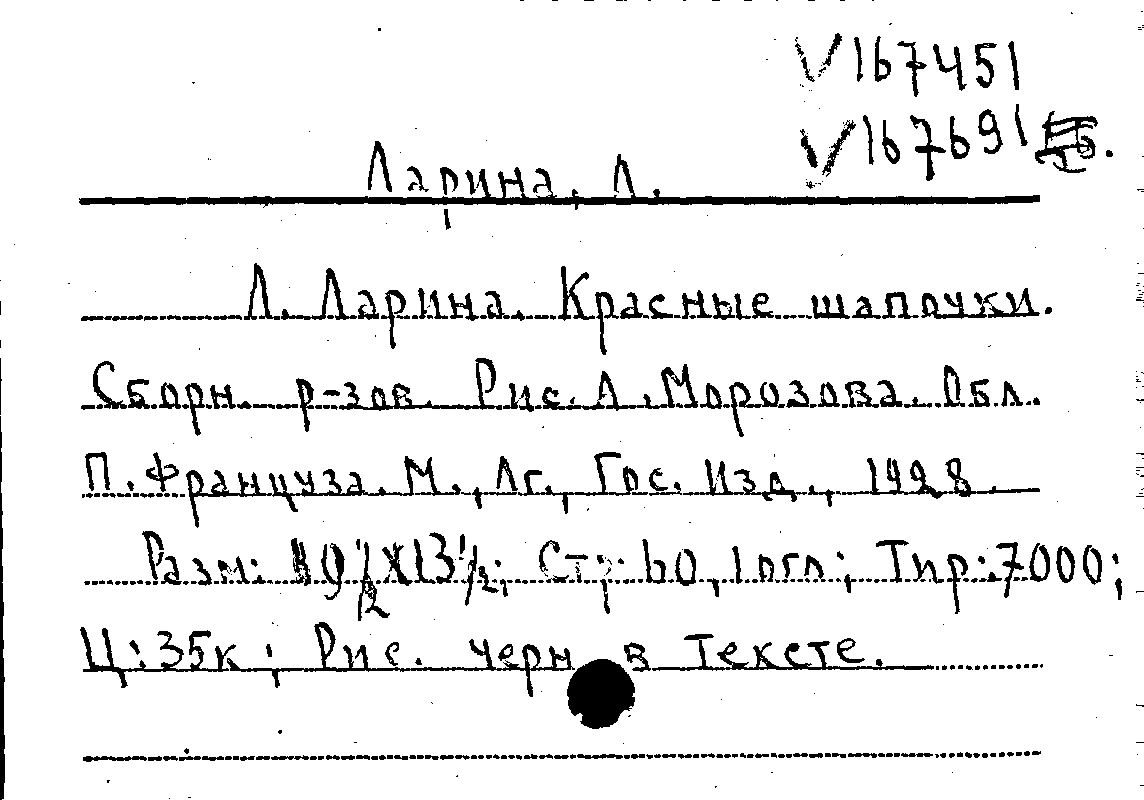 √167451
√167691
Ларина, Л.
Л. Ларина. Красные шапочки.
Сборн. р-зов. Рис. А. Морозова. Обл.
П. Француза. М., Лг., Гос. Изд., 1928.
Разм: 19 1/2 X 13 1/2; Стр: 60, 1 огл; Тир: 7000;
Ц: 35к; Рис. черн в тексте.